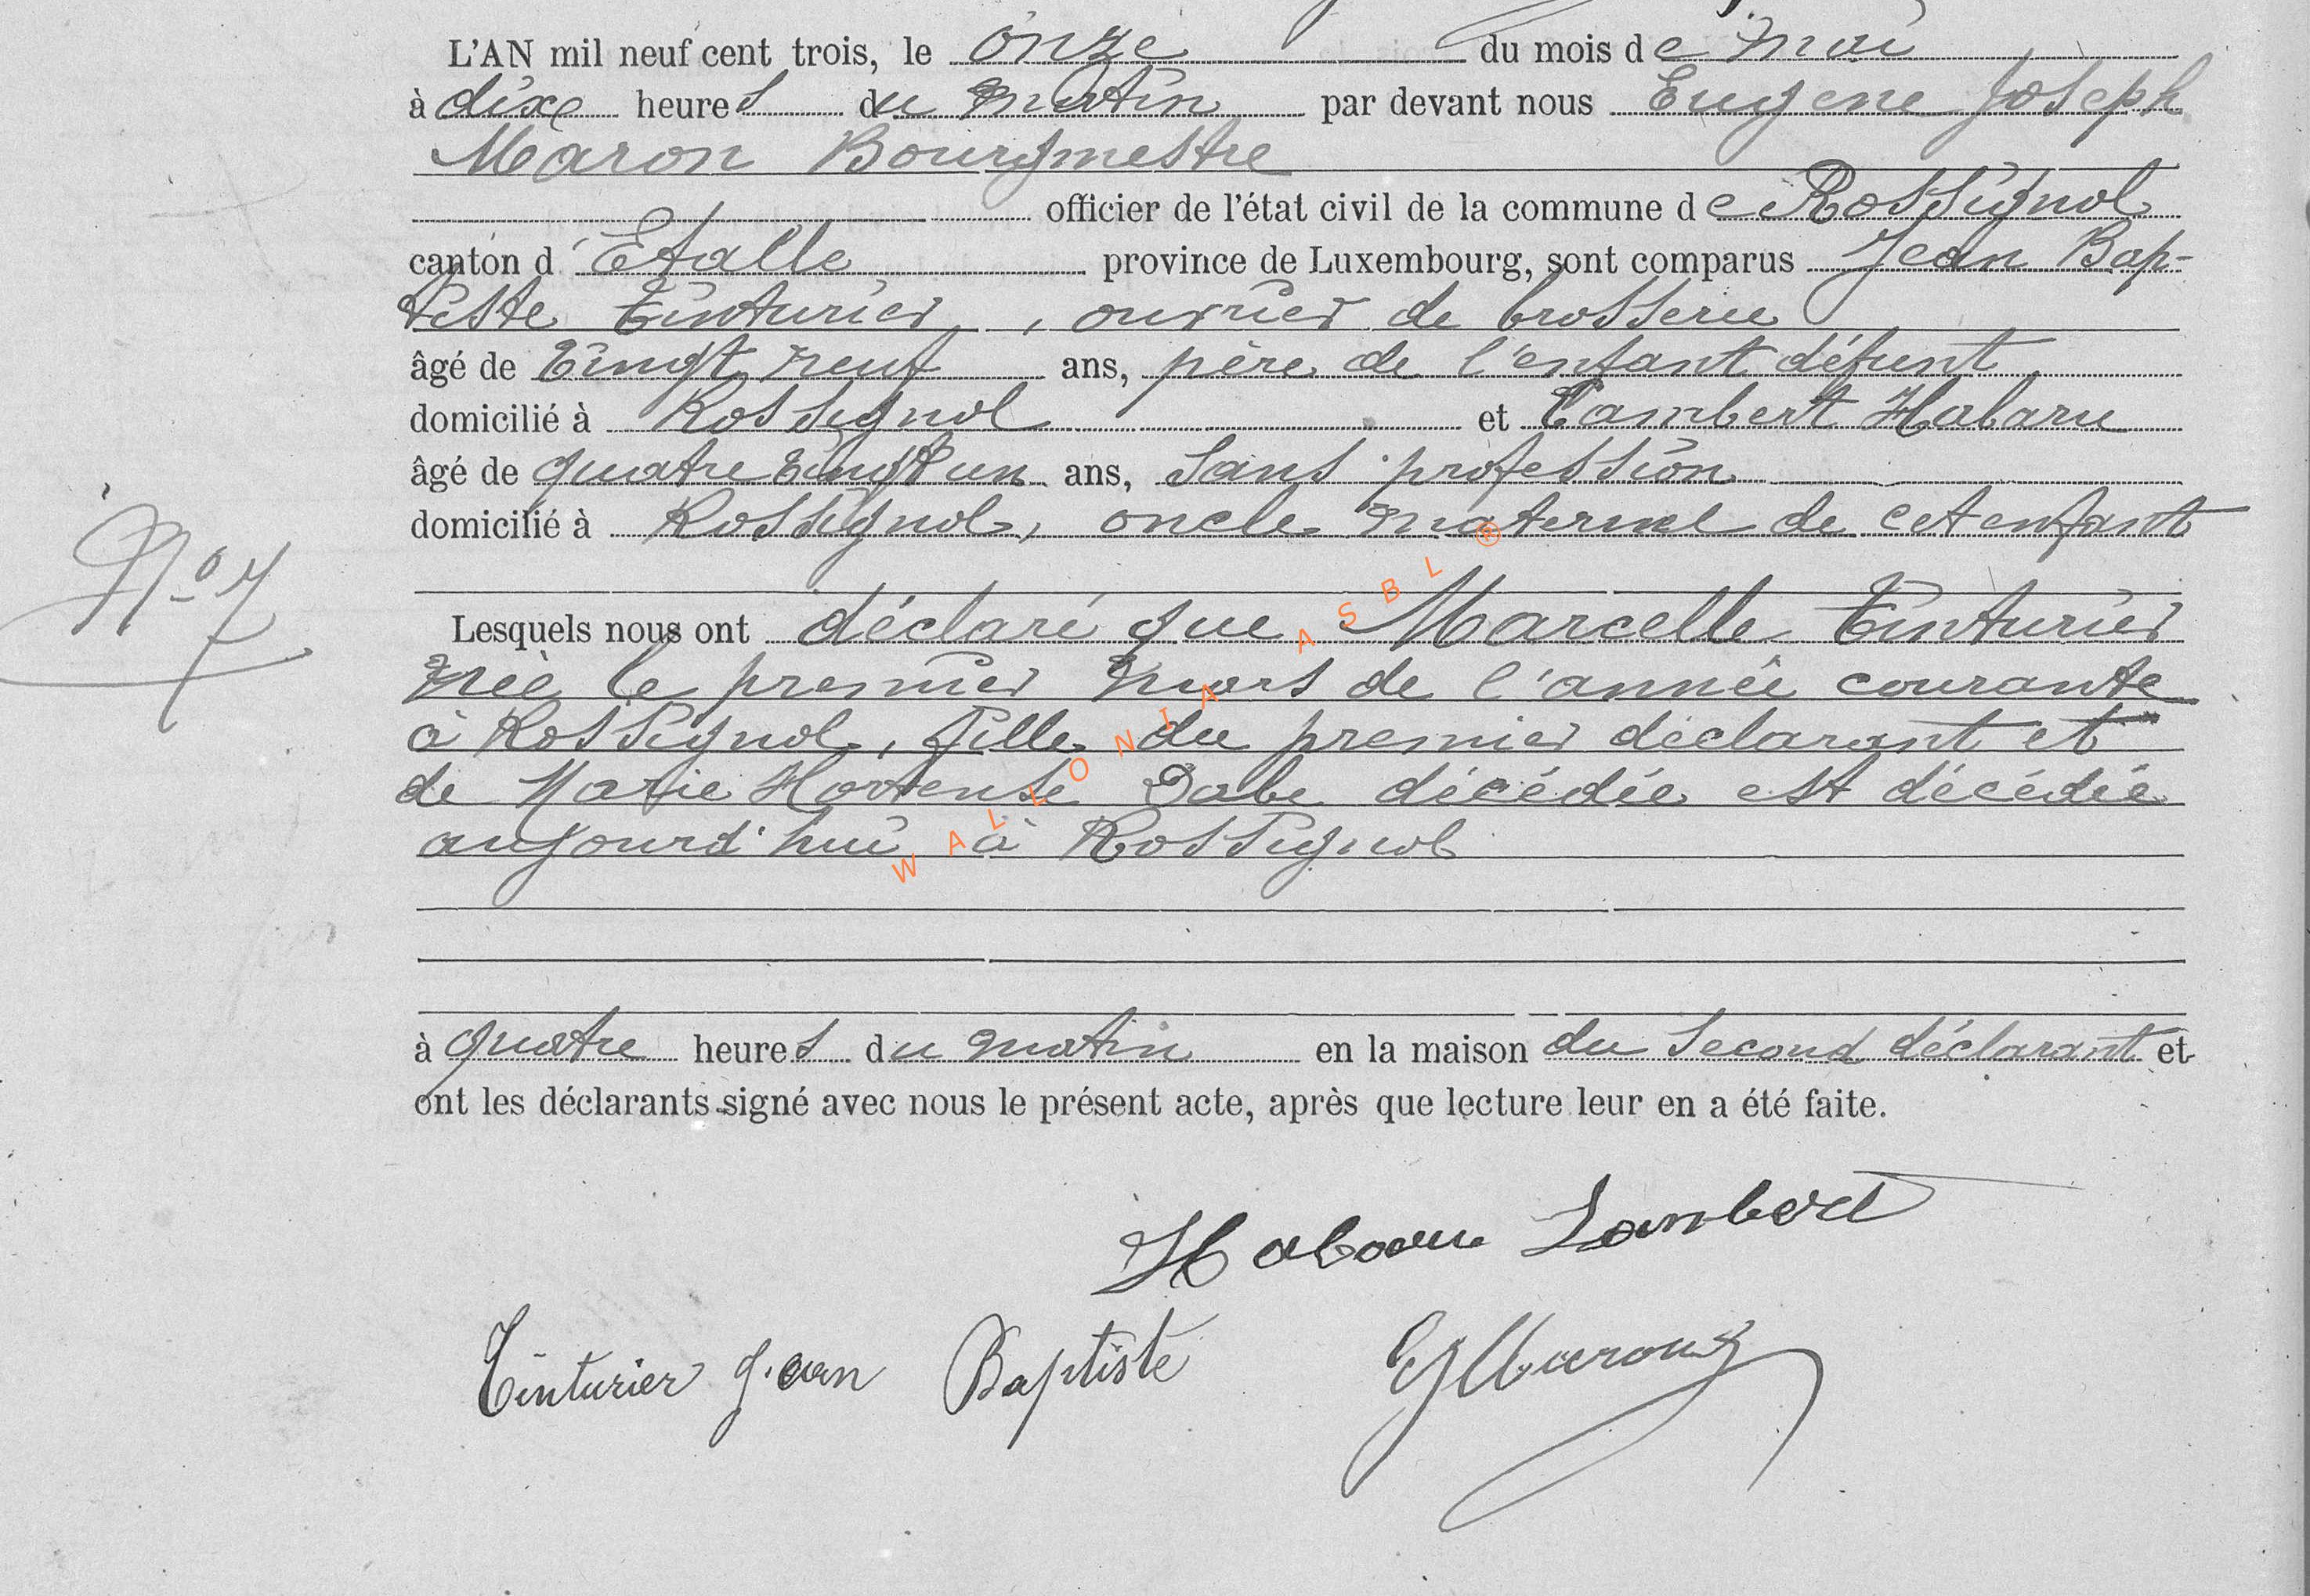 L'AN mil neuf cent trois, le onze du mois de mai
à dixe heures du matin par devant nous Eugène Joseph
Maron Bourgmestre
officier de l'état civil de la commune de Rossignol
canton d'Etalle province de Luxembourg, sont comparus Jean Bap-
tiste Tinturier, ouvrier de brosserie
âgé de vingt neuf ans, père de l'enfant défunt
domicilié à Rossignol et Lambert Habaru
âgé de quatre vingt un ans, sans profession
domicilié à Rossignol, oncle maternel de cet enfant
N° 7
Lesquels nous ont déclaré que Marcelle Tinturier
née le premier mars de l'année courante
à Rossignol, fille du premier déclarant et
de Marie Hortense Dabe décédée est décédée
aujourd'hui à Rossignol
WALLONIA ASBL ®
à quatre heures du matin en la maison du second déclarant et
ont les déclarants signé avec nous le présent acte, après que lecture leur en a été faite.
Habaru Lambert
Tinturier Jean Baptiste EJMaron